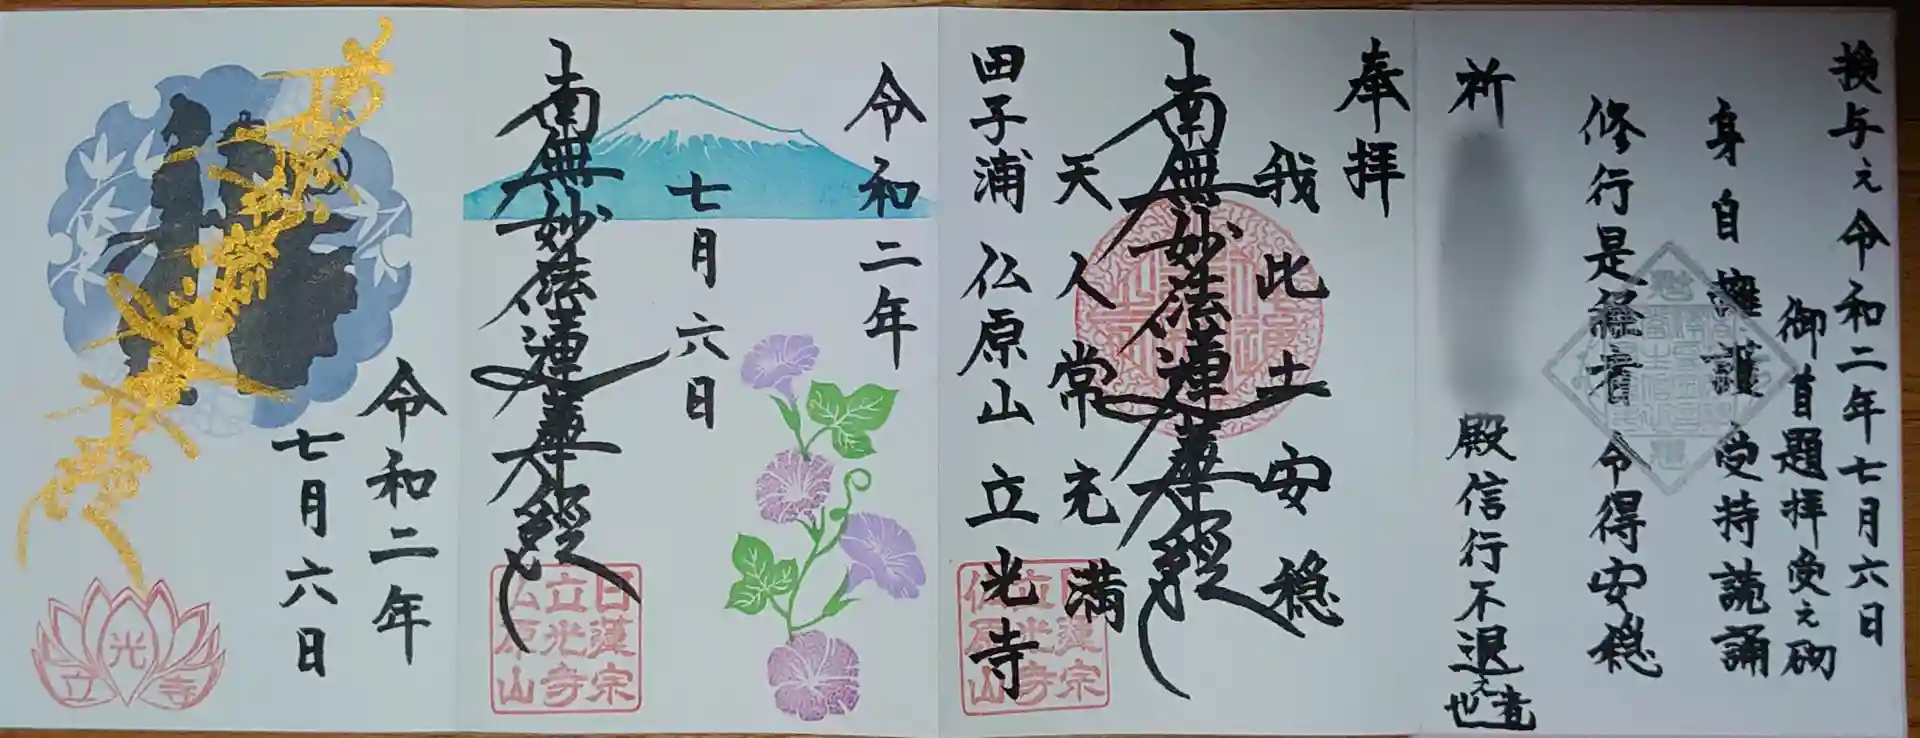 授与之令和二年七月六日
御首題拝受之砌
身自擁護 受持読誦
修行是経者 令得安穏
祈
殿信行不退之者也
奉拝
我此土安穏
南無妙法蓮華経
天人常充満
田子浦 仏原山 立光寺
日蓮宗
立光寺
仏原山
令和二年
七月六日
南無妙法蓮華経
日蓮宗
立光寺
仏原山
令和二年
七月六日
立光寺